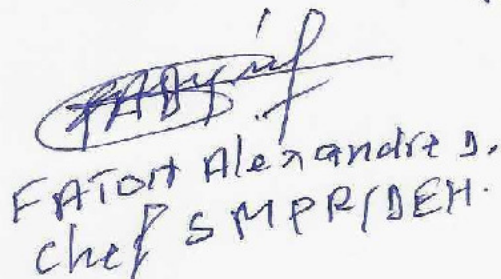 FATON Alexandre D.
Chef SMPR/DEH.